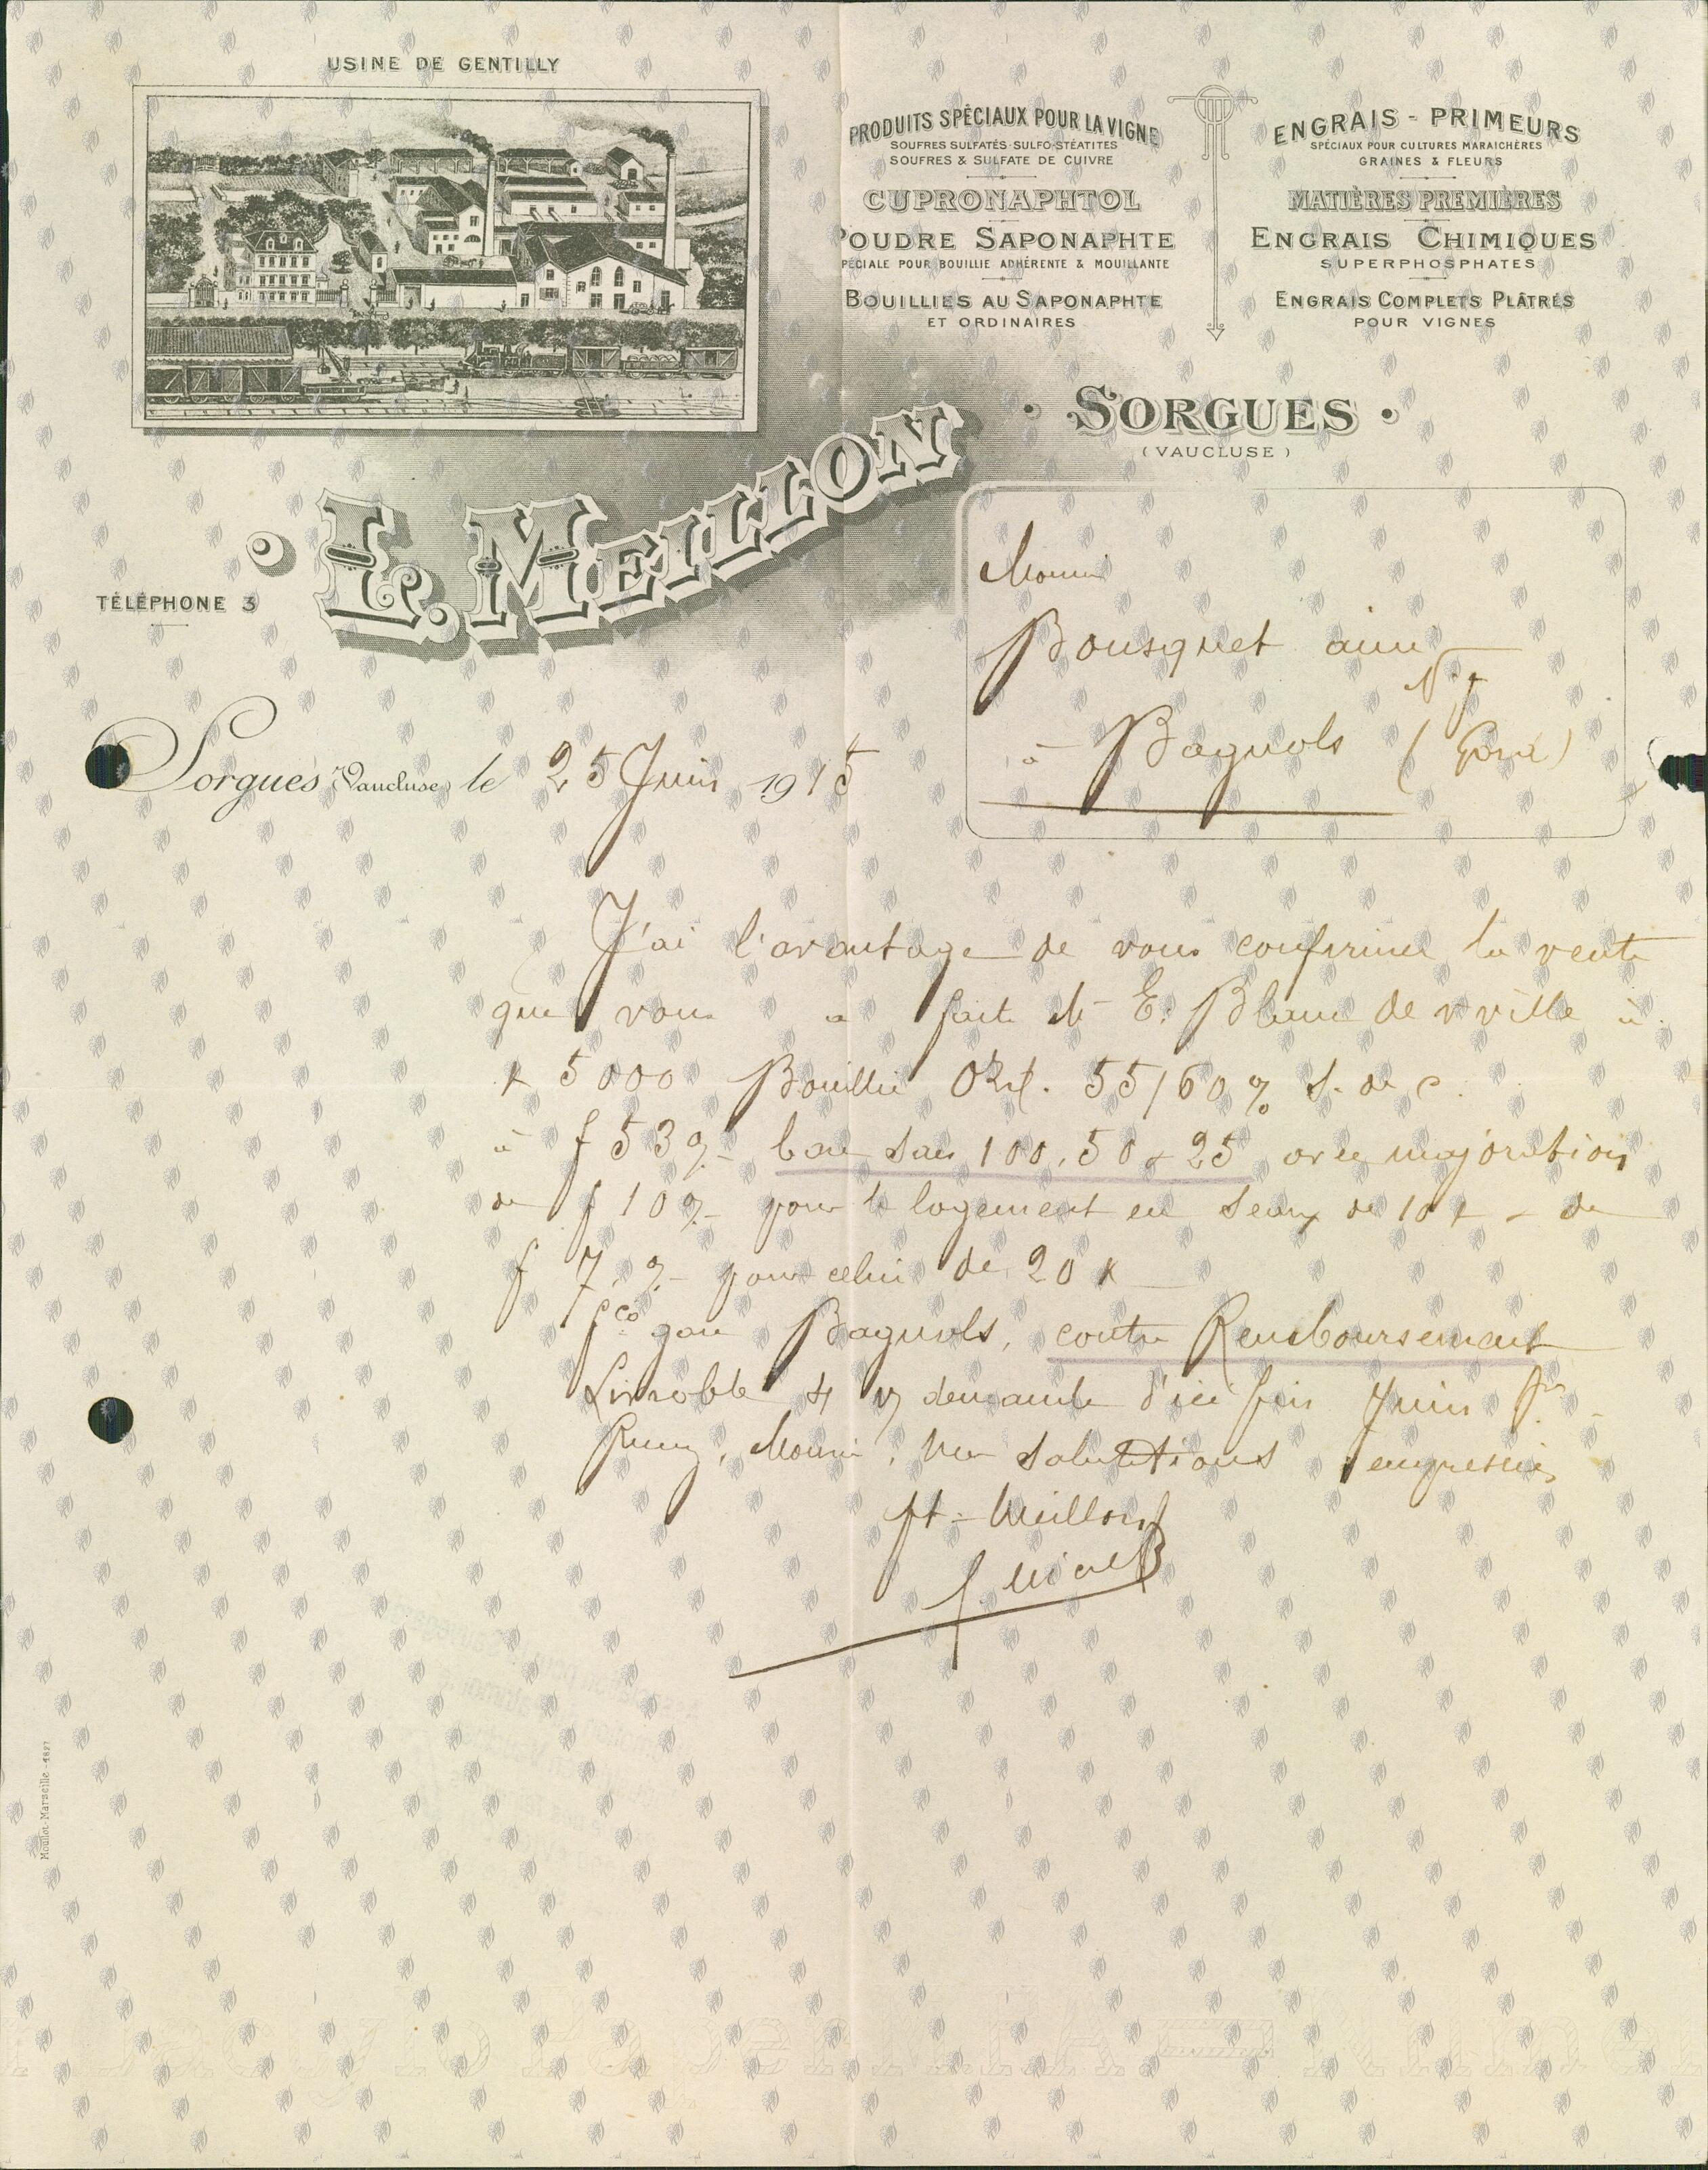 USINE DE GENTILLY
PRODUITS SPÉCIAUX POUR LA VIGNE
SOUFRES SULFATÉS-SULFO-STÉATITES
SOUFRES & SULFATE DE CUIVRE
CUPRONAPHTOL
POUDRE SAPONAPHTE
SPÉCIALE POUR BOUILLIE ADHÉRENTE & MOUILLANTE
BOUILLIES AU SAPONAPHTE
ET ORDINAIRES
ENGRAIS - PRIMEURS
SPÉCIAUX POUR CULTURES MARAICHÈRES
GRAINES & FLEURS
MATIÈRES PREMIÈRES
ENGRAIS CHIMIQUES
SUPERPHOSPHATES
ENGRAIS COMPLETS PLÂTRÉS
POUR VIGNES
SORGUES
(VAUCLUSE)
L. MEILLON
TÉLÉPHONE 3
Bousquet
à Bagnols (Gard)
Sorgues (Vaucluse) le 25 Juin 1915
J'ai l'avantage de vous confirmer la vente
que vous a faite Mr E. Blanc de v ville à
K 5000 Bouillie 55/60 % S. de C.
à f 53 %
100, 50 & 25 avec majoration
de f 10 % pour le logement en seaux de 10 K - de
f 7, % pour celui de 20 K
fco gare Bagnols, contre Remboursement
Livrable demande d'ici fin Juin
salutations empressées
Meillon
Moullot-Marseille-4897